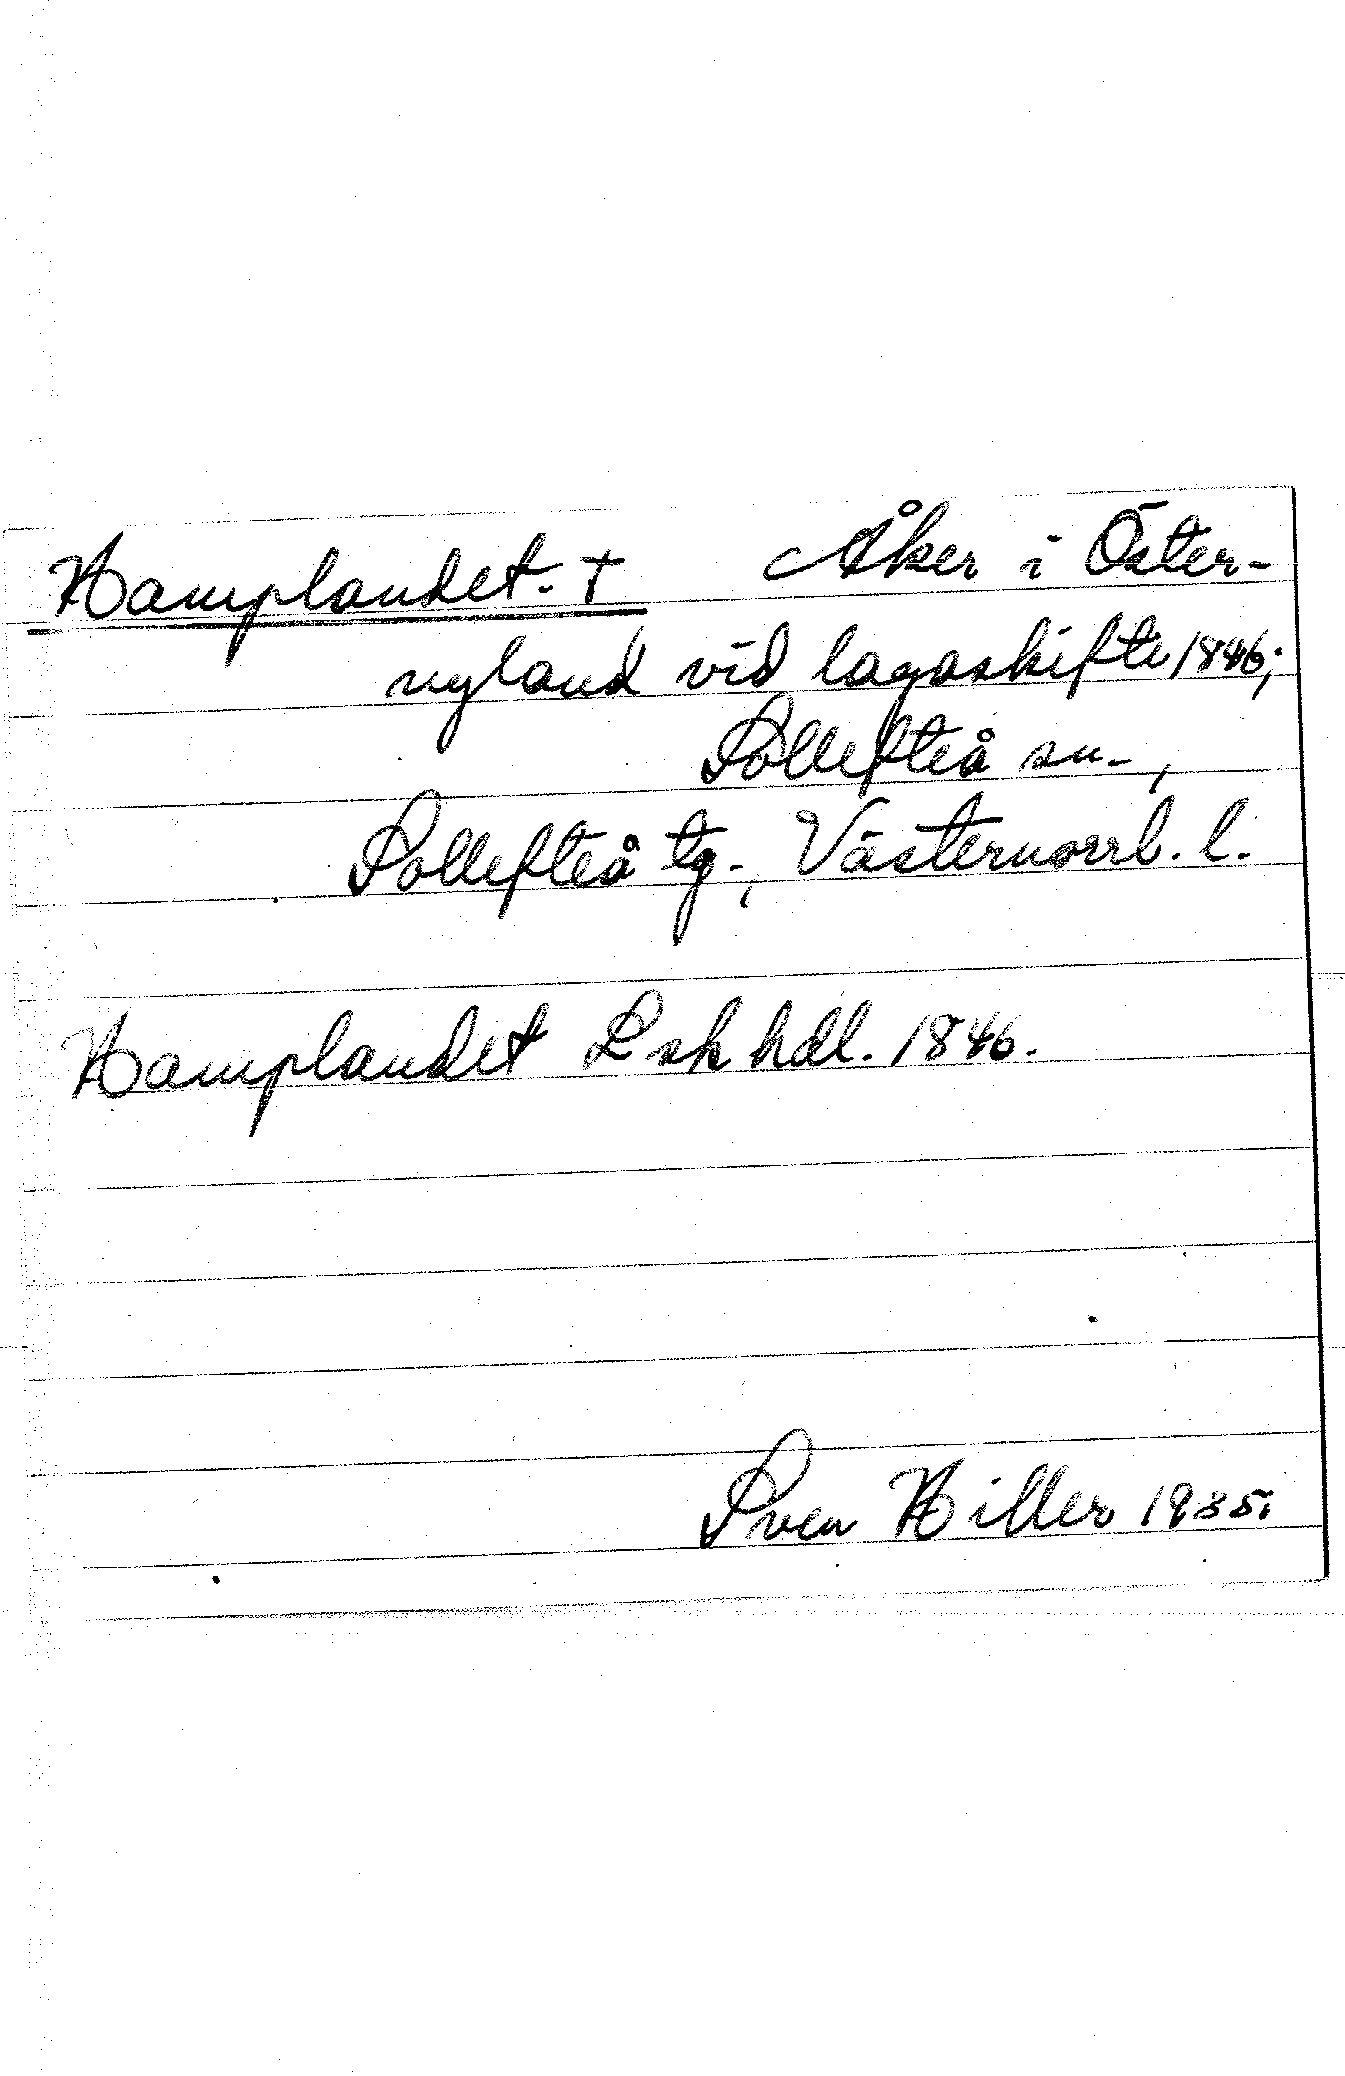 Hamplandet. † Åker i Öster-
nyland vid lagaskifte 1846;
Sollefteå sn.,
Sollefteå tg., Västernorrl. l.
Hamplandet Lsk hdl. 1846.
Sven Hiller 1935.